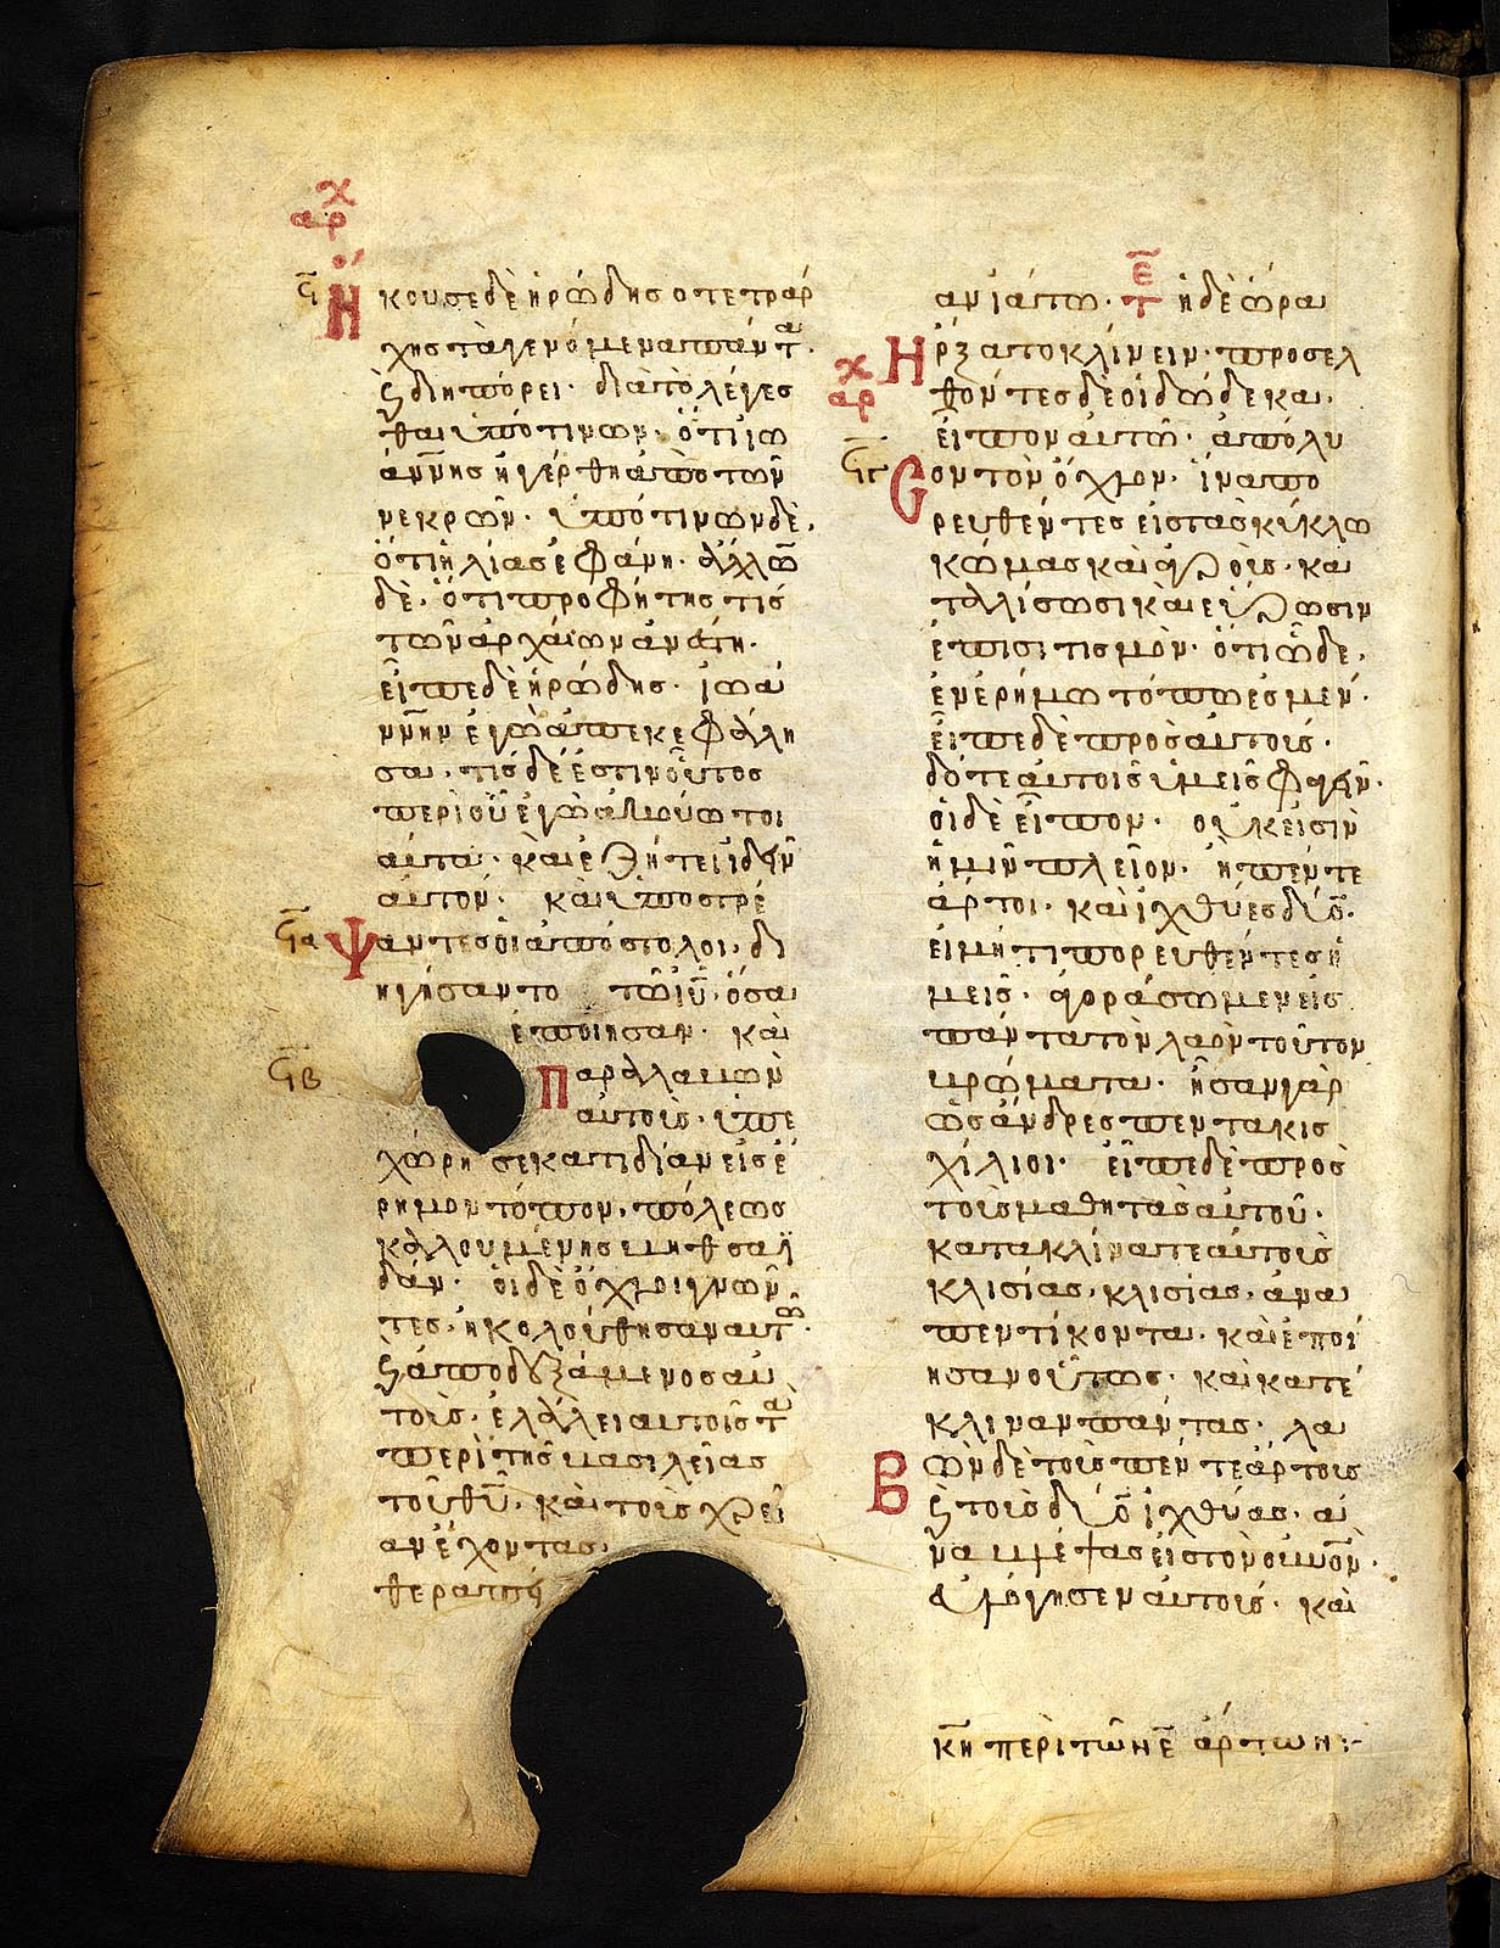 χ
αρ
Ϟ Ἤκουσε δὲ ἡρώδης ὁ τετράρ
χης τὰ γενόμενα πάντ(α).
ϛ διηπόρει· διὰ τὸ λέγεσ
θαι ὑπό τινων· ὅτι ἰω
άννης ἠγέρθη ἀπὸ τῶν
νεκρῶν· ὑπό τινων δὲ,
ὅτι ἠλίας ἐφάνη· ἄλλω̅
δὲ, ὅτι προφήτης τις
τῶν ἀρχαίων ἀνέστη.
εἶπε δὲ ἡρώδης· ἰωά
ννην ἐγὼ ἀπεκεφάλι
σα· τίς δέ ἐστιν οὗτος
περὶ οὗ ἐγὼ ἀκούω τοι
αῦτα· καὶ ἐζήτει ἰδεῖν
αὐτόν· καὶ ὑποστρέ
Ϟα Ψαντες οἱ ἀπόστολοι, δι
ηγήσαντο τῶ ι̅υ̅· ὅσα
ἐποίησαν· καὶ
Ϟβ Παραλαβὼν
αὐτοὺς· ὑπε
χώρησε κατιδίαν εἰς ἔ
ρημον τόπον, πόλεως
καλουμένης βηθσαϊ
δάν· οἱ δὲ ὄχλοι γνῶν
τες, ἠκολούθησαν αυτῶ.
ϛ ἀποδεξάμενος αὐ
τοὺς· ἐλάλει αυτοῖς τὰ
περὶ τῆς βασιλείας
τοῦ θ̅υ̅, καὶ τοὺς χρεί
αν ἔχοντας,
θεραπεί
αν ἰάτο. ε̅ τ ἡ δὲ ἡμέρα
χ
αρ Ήρξατο κλίνειν· προσελ
θόντες δὲ οἱ δώδεκα,
εἶπον αὐτῶ· ἀπόλυ
Ϟγ Σον τὸν ὄχλον· ἵνα πο
ρευθέντες εἰς τὰς κύκλω
κώμας καὶ ἀγροὺς· κα
ταλύσωσι καὶ εὕρωσιν
ἐπισιτισμὸν· ὅτι ὧδε,
ἐν ἐρήμω τόπω ἐσμέν.
εἶπε δὲ πρὸς αὐτούς.
δότε αὐτοῖς ὑμεῖς φαγεῖν.
οἱ δὲ εἶπον· οὐκ εἰσὶν
ἡμῖν πλεῖον· ἢ πέντε
ἄρτοι· καὶ ἰχθύες δύο.
εἰ μή τι πορευθέντες ἡ
μεῖς· ἀγοράσωμεν εἰς
πάντα τὸν λαὸν τοῦτον
βρώματα· ἦσαν γὰρ
ὡς ἄνδρες πεντακισ
χίλιοι· εἶπε δὲ πρὸς
τοὺς μαθητὰς αὐτοῦ.
κατακλίνατε αὐτοὺς
κλισίας, κλισίας, ἀνα
πεντίκοντα· καὶ ἐποί
ησαν οὕτως· καὶ κατέ
κλιναν πάντας· λα
Βὼν δὲ τοὺς πέντε ἄρτους
ϛ τοὺς δύο ἰχθύας· ἀ
ναβλέψας εἰς τὸν ου̅νο̅ν.
εὐλόγησεν αὐτούς· καὶ
κ̅η περὶ τῶν ε̅ ἄρτων:-